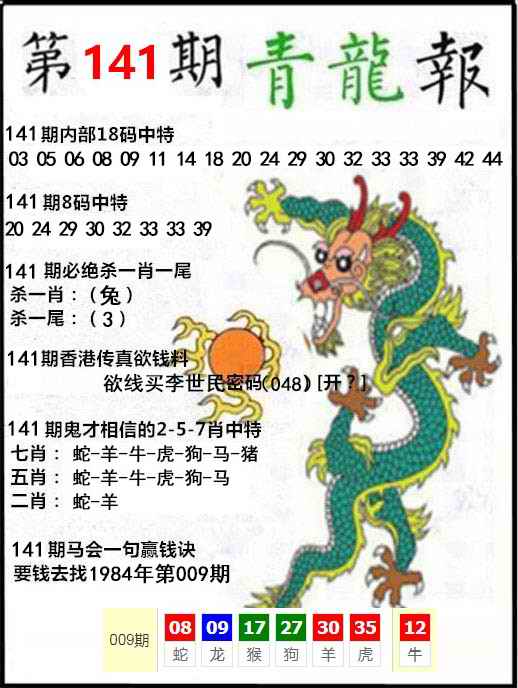 第141期青龍報
141期内部18码中特
03 05 06 08 09 11 14 18 20 24 29 30 32 33 33 39 42 44
141期8码中特
20 24 29 30 32 33 33 39
141 期必绝杀一肖一尾
杀一肖：（兔）
杀一尾：（3）
141期香港传真欲钱料
欲线买李世民密码(048) [开？]
141期鬼才相信的2-5-7肖中特
七肖： 蛇-羊-牛-虎-狗-马-猪
五肖： 蛇-羊-牛-虎-狗-马
二肖： 蛇-羊
141期马会一句赢钱诀
要钱去找1984年第009期
009期 08 09 17 27 30 35 12
蛇 龙 猴 狗 羊 虎 牛